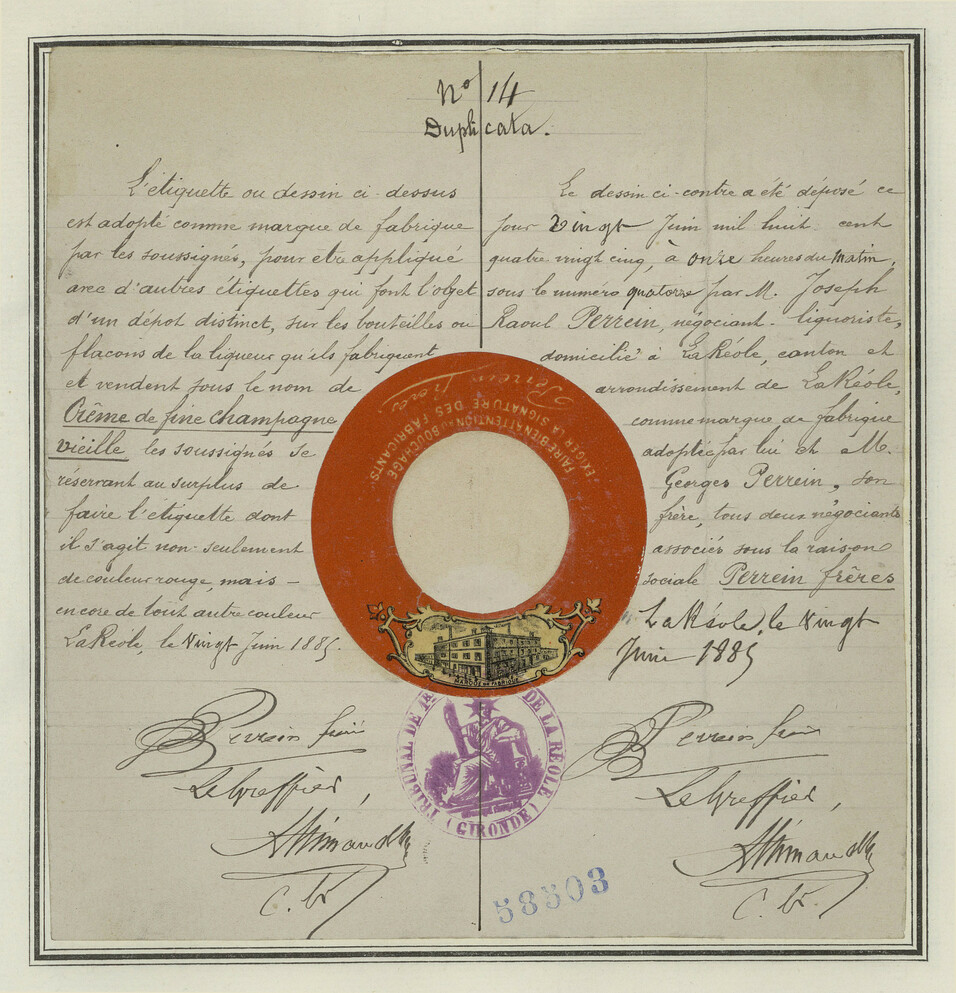 No 14
Duplicata.
L'étiquette ou dessin ci-dessus
est adopté comme marque de fabrique
par les soussignés, pour etre appliqué
avec d'autres étiquettes qui font l'objet
d'un dépot distinct, sur les bouteilles ou
flacons de la liqueur qu'ils fabriquent
et vendent sous le nom de
Crême de fine champagne
vieille les soussignés se
réservant au surplus de
faire l'étiquette dont
il s'agit non-seulement
de couleur rouge, mais –
encore de tout autre couleur
La Réole, le Vingt Juin 1885.
Perrein frères
Le Greffier,
Le dessin ci-contre a été déposé ce
jour Vingt Juin mil huit cent
quatre vingt cinq, à onze heures du matin,
sous le numéro quatorze par M. Joseph
Raoul Perrein, négociant-liquoriste,
domicilié à La Réole, canton et
arrondissement de La Réole,
comme marque de fabrique
adoptée par lui et M.
Georges Perrein, son
frère, tous deux négociants
associés sous la raison
sociale Perrein frères
La Réole, le Vingt
Juin 1885
Perrein frères
Le Greffier,
FAIRE BIEN ATTENTION AU BOUCHAGE
"EXIGER LA SIGNATURE DES FABRICANTS"
Perrein frères
MARQUE DE FABRIQUE
TRIBUNAL DE 1 DE LA RÉOLE
(GIRONDE)
58503